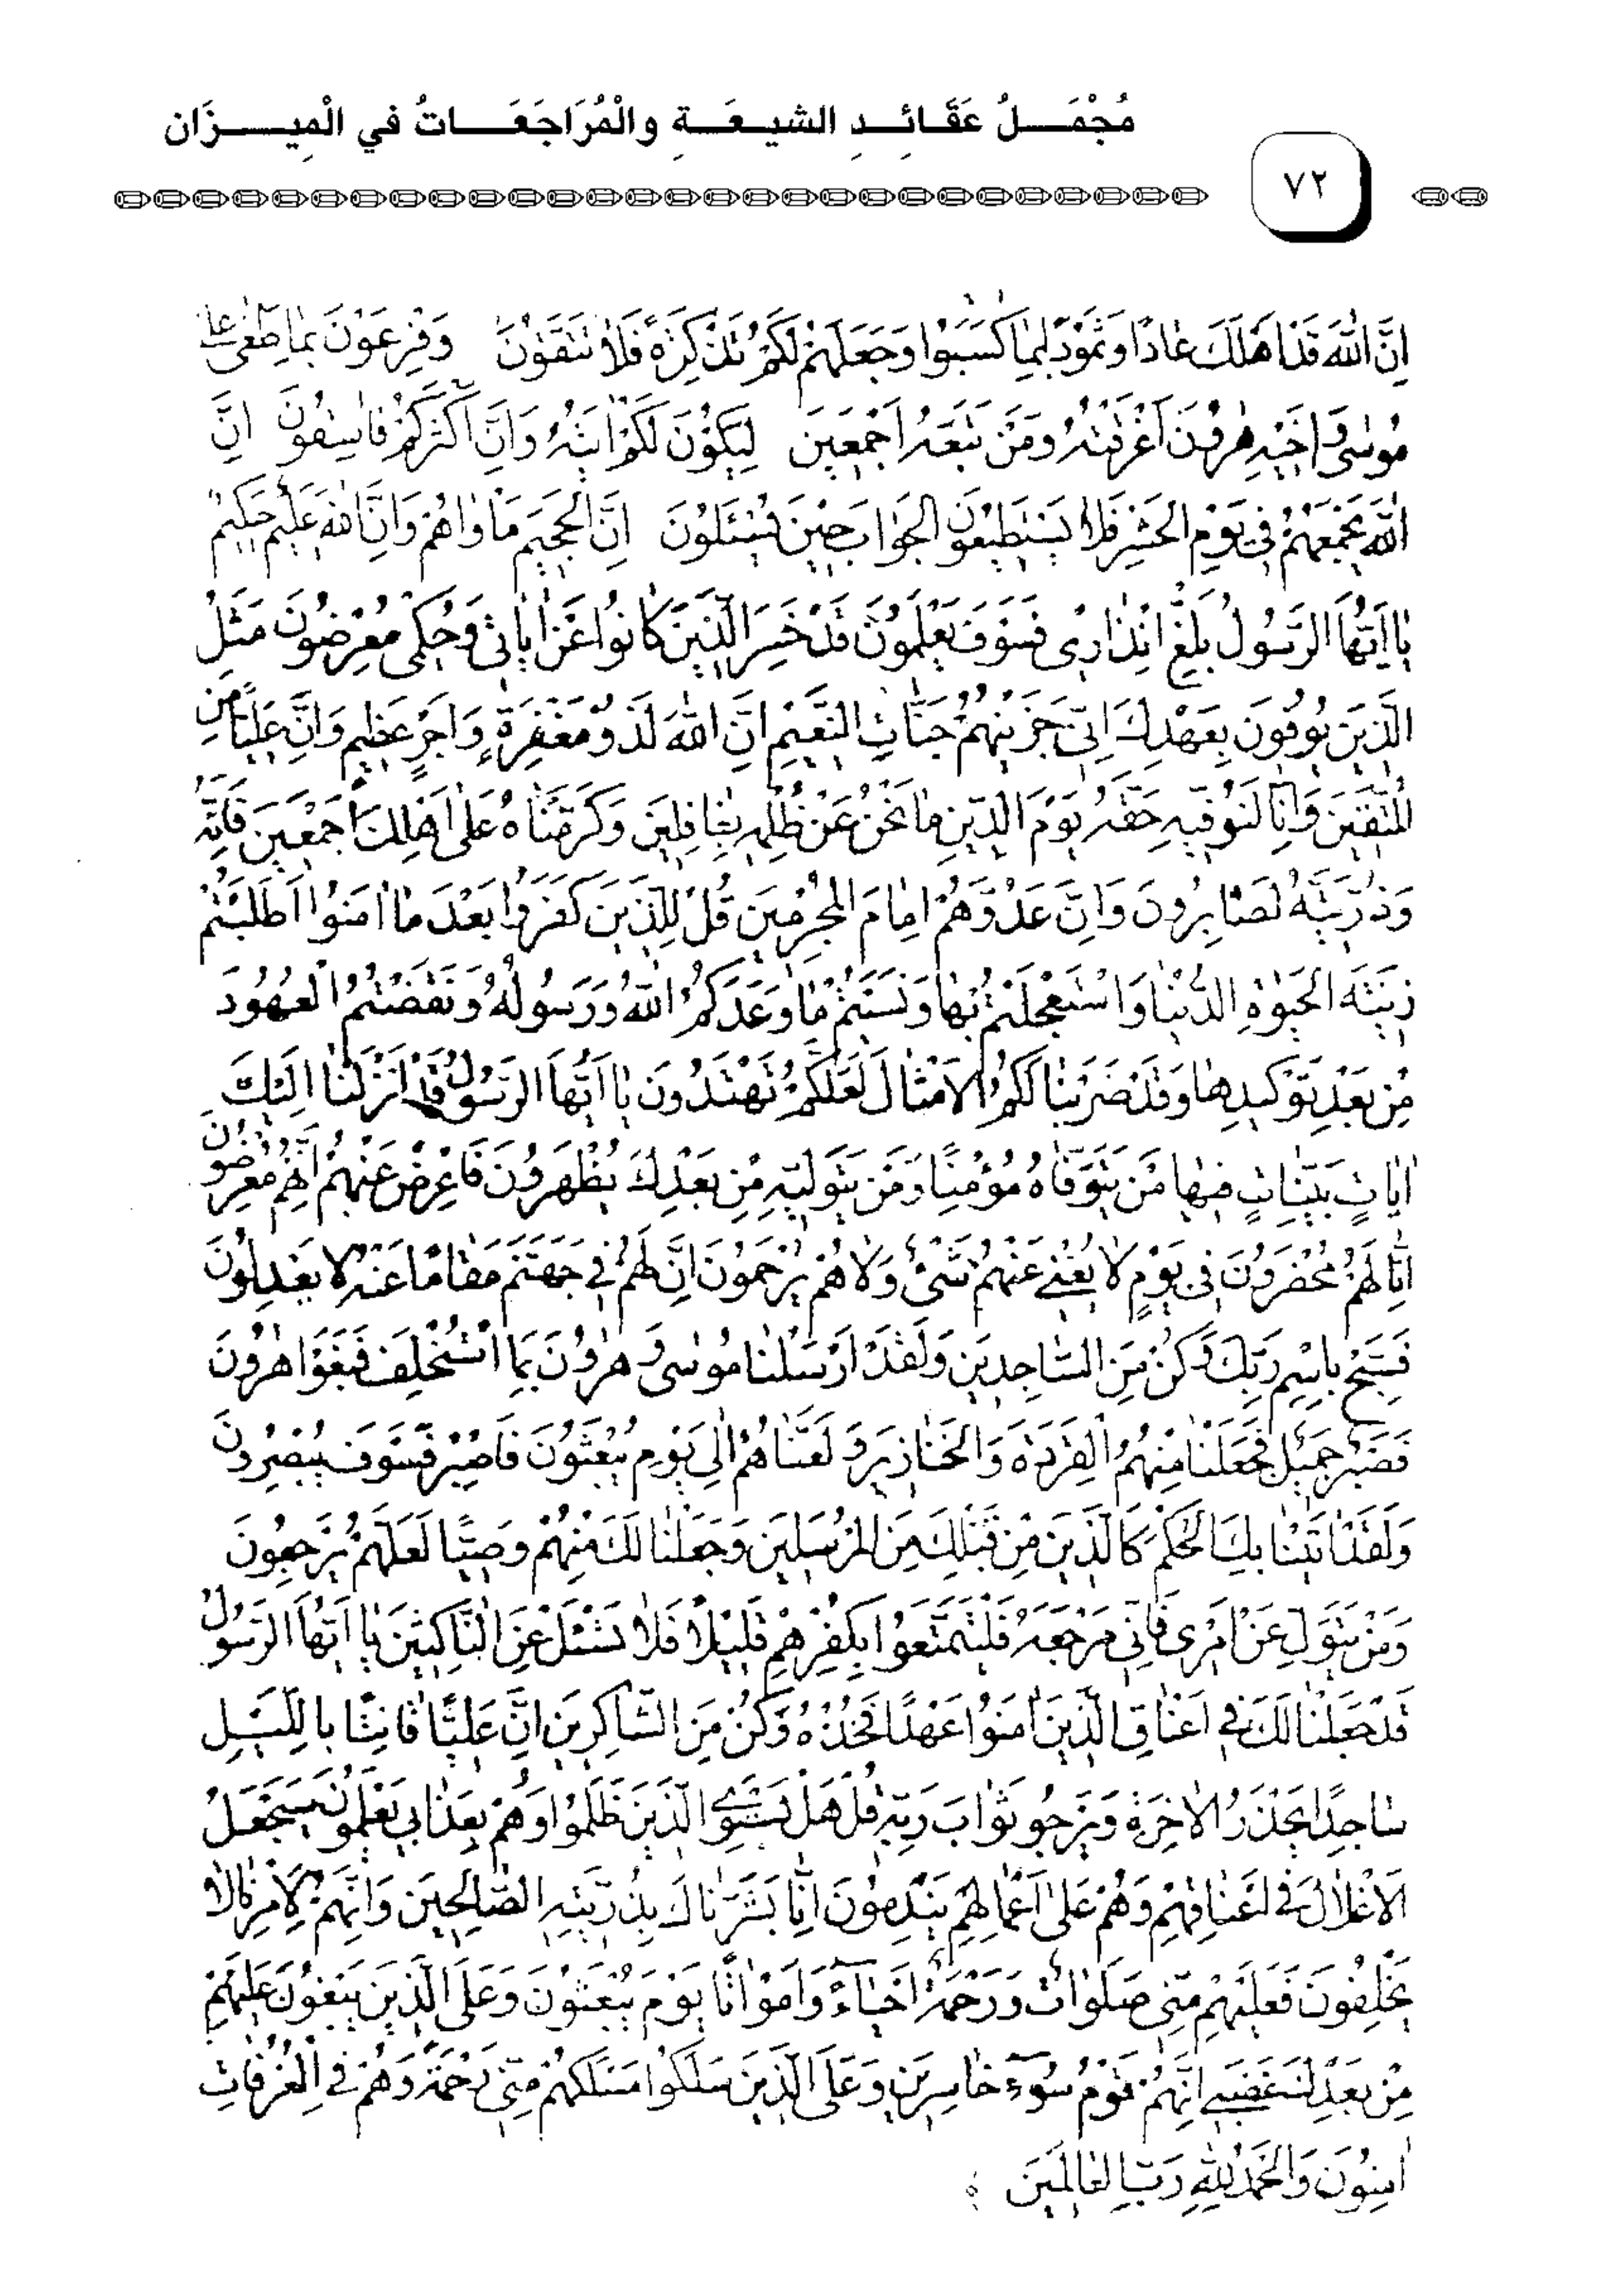 مُجْمَلُ عَقَائِدِ الشيعَةِ والْمُرَاجَعَاتُ في الْمِيزَان
٧٢
اِنَّ اللّٰهَ قَدْ اَهْلَكَ عَادًا وَثَمُودَ بِمَا كَسَبُوا وَجَعَلَهُمْ لَكُمْ تَذْكِرَةً فَلَا تَتَّقُونَ وَفِرْعَوْنَ بِمَا طَغٰى عَلٰى
مُوسٰى وَاَخِيهِ هٰرُونَ اَغْرَقْنٰهُ وَمَنْ تَبِعَهُ اَجْمَعِينَ لِيَكُونَ لَكُمْ اٰيَتُهُ وَاِنَّ اَكْثَرَكُمْ فَاسِقُونَ اِنَّ
اللّٰهَ يَجْمَعُهُمْ فِى يَوْمِ الْحَشْرِ فَلَا يَسْتَطِيعُونَ الْجَوَابَ حِينَ يُسْئَلُونَ اِنَّ الْجَحِيمَ مَأْوَاهُمْ وَاِنَّ اللّٰهَ عَلِيمٌ حَكِيمٌ
يٰا اَيُّهَا الرَّسُولُ بَلِّغْ اِنْذَارِى فَسَوْفَ يَعْلَمُونَ قَدْ خَسِرَ الَّذِينَ كَانُوا عَنْ اٰيَاتِى وَحُكْمِى مُعْرِضُونَ مَثَلُ
الَّذِينَ يُوفُونَ بِعَهْدِكَ اِنِّى جَزَيْتُهُمْ جَنَّاتِ النَّعِيمِ اِنَّ اللّٰهَ لَذُو مَغْفِرَةٍ وَاَجْرٍ عَظِيمٍ وَاِنَّ عَلِيًّا مِنَ
الْمُتَّقِينَ وَاِنَّا لَنُوَفِّيهِ حَقَّهُ يَوْمَ الدِّينِ مَا نَحْنُ عَنْ ظُلْمِهِ بِغَافِلِينَ وَكَرَّمْنَاهُ عَلٰى اَهْلِكَ اَجْمَعِينَ فَاِنَّهُ
وَذُرِّيَّتَهُ لَصَابِرُونَ وَاِنَّ عَدُوَّهُمْ اِمَامُ الْمُجْرِمِينَ قُلْ لِلَّذِينَ كَفَرُوا بَعْدَ مَا اٰمَنُوا اَطَلَبْتُمْ
زِينَةَ الْحَيٰوةِ الدُّنْيَا وَاسْتَعْجَلْتُمْ بِهَا وَنَسِيتُمْ مَا وَعَدَكُمُ اللّٰهُ وَرَسُولُهُ وَنَقَضْتُمُ الْعُهُودَ
مِنْ بَعْدِ تَوْكِيدِهَا وَقَدْ ضَرَبْنَا لَكُمُ الْاَمْثَالَ لَعَلَّكُمْ تَهْتَدُونَ يٰا اَيُّهَا الرَّسُولُ قَدْ اَنْزَلْنَا اِلَيْكَ
اٰيَاتٍ بَيِّنَاتٍ فِيهَا مَنْ يَتَوَفَّاهُ مُؤْمِنًا وَمَنْ يَتَوَلَّيْهِ مِنْ بَعْدِكَ يُظْهَرُونَ فَاَعْرِضْ عَنْهُمْ اِنَّهُمْ مُعْرِضُونَ
اِنَّا لَهُمْ مُحْضَرُونَ فِى يَوْمٍ لَا يُغْنِى عَنْهُمْ شَىْءٌ وَلَا هُمْ يُرْحَمُونَ اِنَّ لَهُمْ فِى جَهَنَّمَ مَقَامًا عَنْهُ لَا يَعْدِلُونَ
فَسَبِّحْ بِاسْمِ رَبِّكَ وَكُنْ مِنَ السَّاجِدِينَ وَلَقَدْ اَرْسَلْنَا مُوسٰى وَهٰرُونَ بِمَا اسْتُخْلِفَ فَبَغَوْا هٰرُونَ
فَصَبْرٌ جَمِيلٌ فَجَعَلْنَا مِنْهُمُ الْقِرَدَةَ وَالْخَنَازِيرَ وَلَعَنَّاهُمْ اِلٰى يَوْمِ يُبْعَثُونَ فَاصْبِرْ فَسَوْفَ يُبْصَرُونَ
وَلَقَدْ اٰتَيْنَا بِكَ الْحُكْمَ كَالَّذِينَ مِنْ قَبْلِكَ مِنَ الْمُرْسَلِينَ وَجَعَلْنَا لَكَ مِنْهُمْ وَصِيًّا لَعَلَّهُمْ يَرْجِعُونَ
وَمَنْ يَتَوَلَّ عَنْ اَمْرِى فَاِنِّى مَرْجِعُهُ فَلْيَتَمَتَّعُوا بِكُفْرِهِمْ قَلِيلًا فَلَا تَسْئَلْ عَنِ النَّاكِثِينَ يٰا اَيُّهَا الرَّسُولُ
قَدْ جَعَلْنَا لَكَ فِى اَعْنَاقِ الَّذِينَ اٰمَنُوا عَهْدًا فَخُذْهُ وَكُنْ مِنَ الشَّاكِرِينَ اِنَّ عَلِيًّا قَانِتًا بِاللَّيْلِ
سَاجِدًا يَحْذَرُ الْاٰخِرَةَ وَيَرْجُو ثَوَابَ رَبِّهِ قُلْ هَلْ يَسْتَوِى الَّذِينَ ظَلَمُوا وَهُمْ بِعَذَابِى يَعْلَمُونَ سَيُجْعَلُ
الْاَغْلَالُ فِى اَعْنَاقِهِمْ وَهُمْ عَلٰى اَعْمَالِهِمْ يَنْدَمُونَ اِنَّا بَشَّرْنَاكَ بِذُرِّيَّتِهِ الصَّالِحِينَ وَاِنَّهُمْ لِاَمْرِنَا لَا
يَخْلِفُونَ فَعَلَيْهِمْ مِنِّى صَلَوَاتٌ وَرَحْمَةٌ اَحْيَاءً وَاَمْوَاتًا يَوْمَ يُبْعَثُونَ وَعَلَى الَّذِينَ يَبْغُونَ عَلَيْهِمْ
مِنْ بَعْدِكَ غَضَبِى اِنَّهُمْ قَوْمُ سُوْءٍ خَاسِرِينَ وَعَلَى الَّذِينَ سَلَكُوا مَسْلَكَهُمْ مِنِّى رَحْمَةٌ وَهُمْ فِى الْغُرُفَاتِ
اٰمِنُونَ وَالْحَمْدُ لِلّٰهِ رَبِّ الْعَالَمِينَ